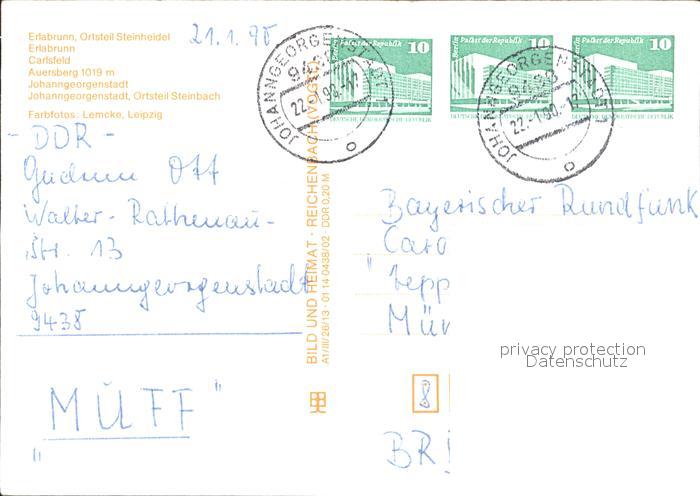 Erlabrunn, Ortsteil Steinheidel
Erlabrunn
Carlsfeld
Auersberg 1019 m
Johanngeorgenstadt
Johanngeorgenstadt, Ortsteil Steinbach
Farbfotos: Lemcke, Leipzig
21.1.90
- DDR -
Gudrun Ott
Walter-Rathenau-
Str. 13
Johanngeorgenstadt
9438
"MÜFF"
BILD UND HEIMAT · REICHENBACH (VOGTL)
A1/III/26/13 · 01 14 0438/02 · DDR 0,20 M
Berlin Palast der Republik 10
DEUTSCHE DEMOKRATISCHE REPUBLIK
Berlin Palast der Republik 10
DEUTSCHE DEMOKRATISCHE REPUBLIK
Berlin Palast der Republik 10
DEUTSCHE DEMOKRATISCHE REPUBLIK
JOHANNGEORGENSTADT 1
22.-1.90.-17
JOHANNGEORGENSTADT 1
9438
22.-1.90.-17
Bayerischer Rundfunk
Caro
"Tepp
Mün
8
BR
privacy protection
Datenschutz